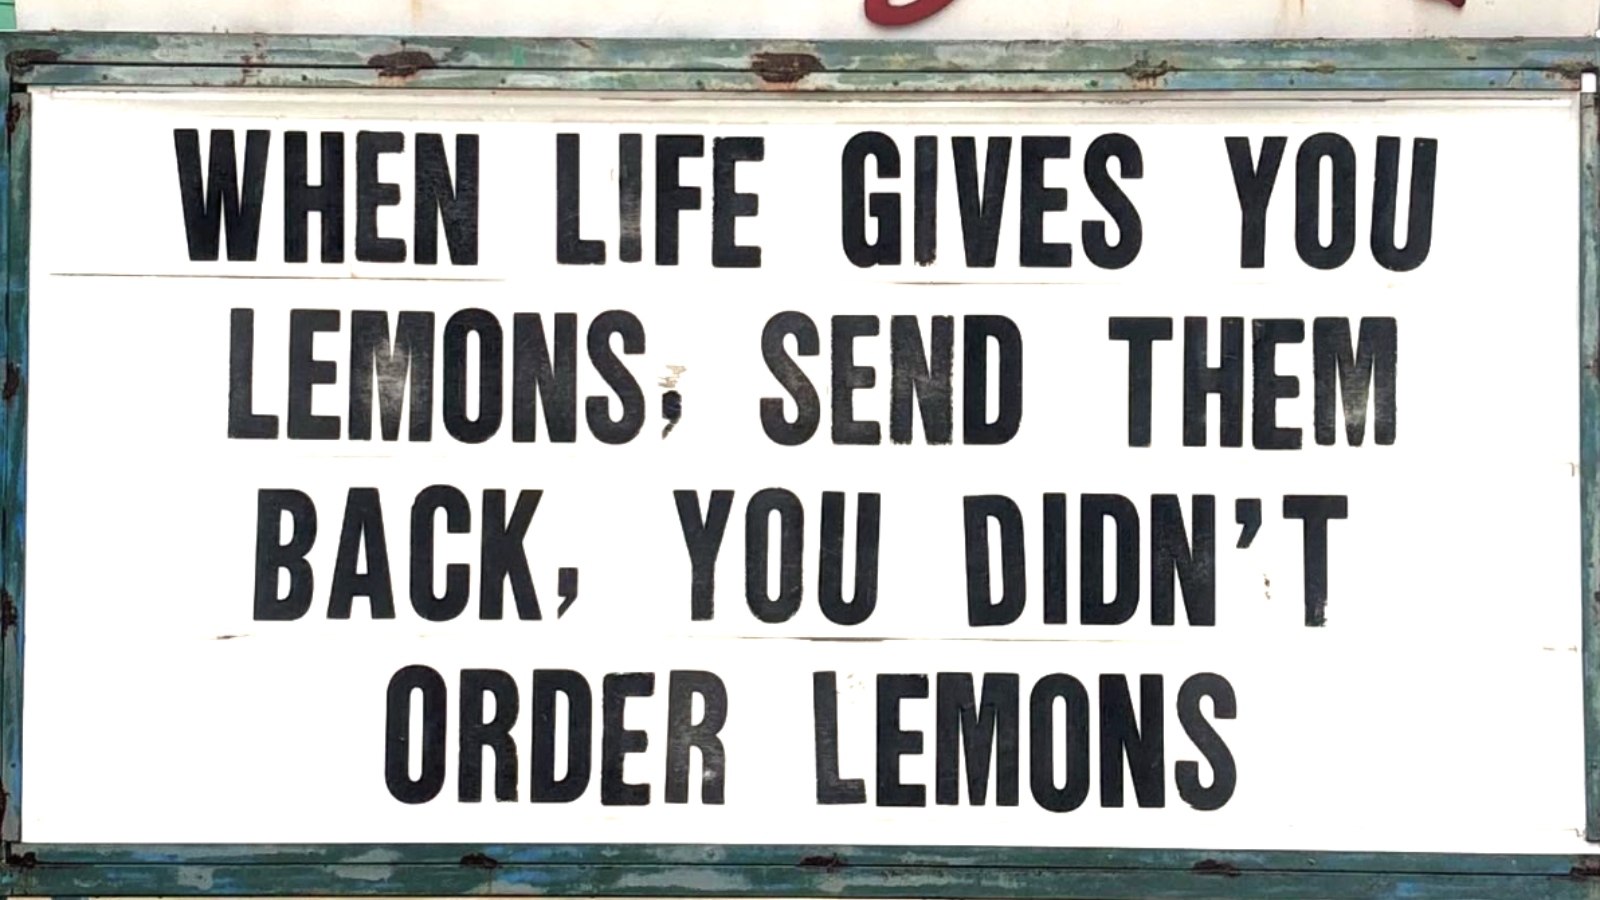 WHEN LIFE GIVES YOU
LEMONS, SEND THEM
BACK, YOU DIDN'T
ORDER LEMONS